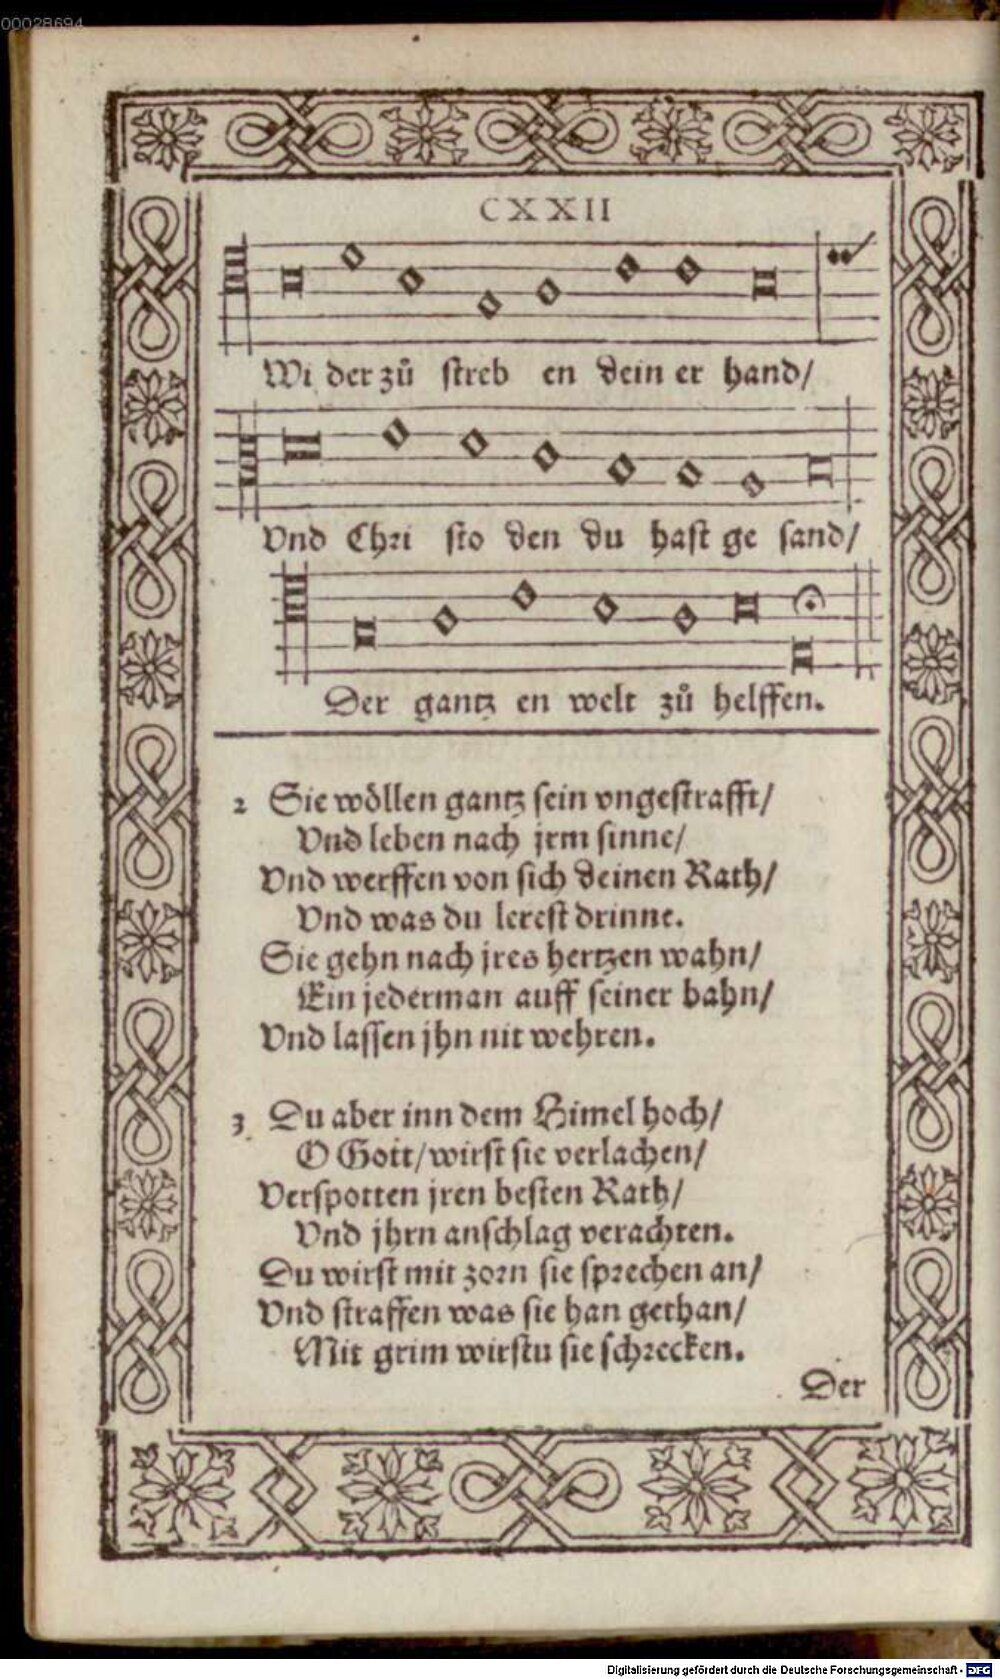 00028694
CXXII
Wi der zů streb en dein er hand/
Vnd Chri sto den du hast ge sand/
Der gantz en welt zů helffen.
2 Sie wöllen gantz sein vngestrafft/
Vnd leben nach jrm sinne/
Vnd werffen von sich deinen Rath/
Vnd was du lerest drinne.
Sie gehn nach jres hertzen wahn/
Ein jederman auff seiner bahn/
Vnd lassen jhn nit wehren.
3 Du aber inn dem Himel hoch/
O Gott/ wirst sie verlachen/
Verspotten jren besten Rath/
Vnd jhrn anschlag verachten.
Du wirst mit zorn sie sprechen an/
Vnd straffen was sie han gethan/
Mit grim wirstu sie schrecken.
Der
Digitalisierung gefördert durch die Deutsche Forschungsgemeinschaft - DFG